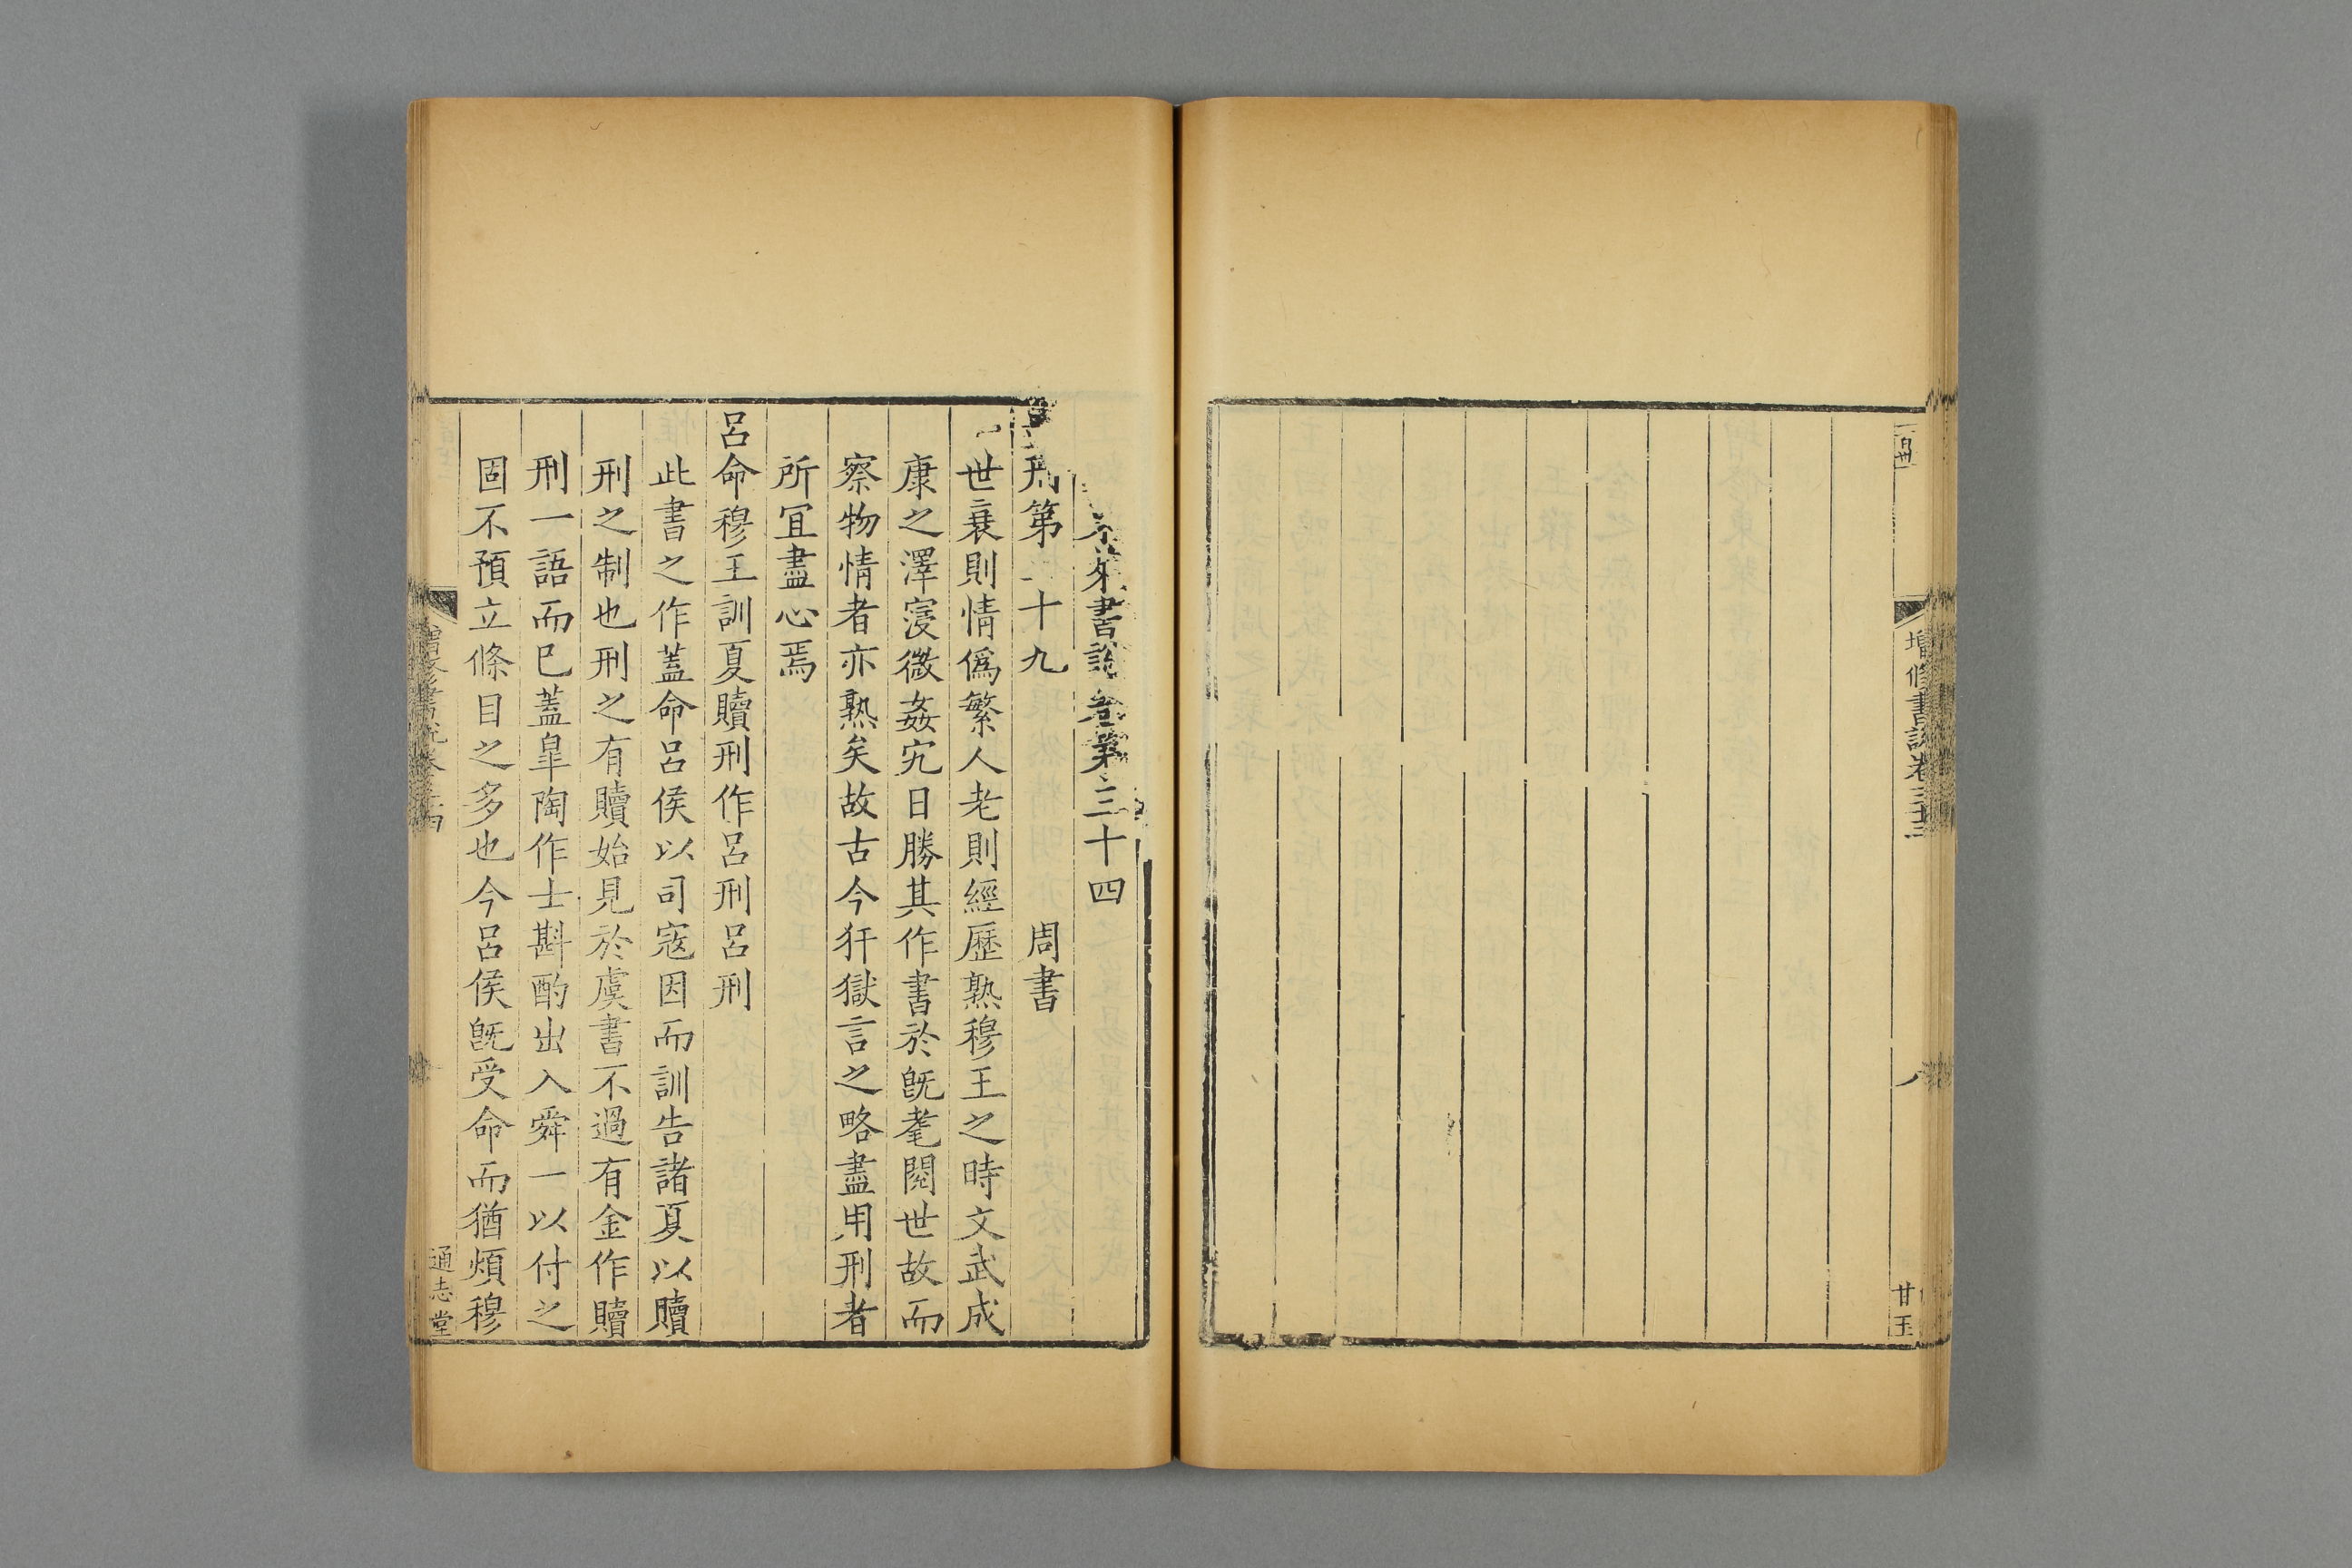 增修書說卷三十三
八
甘玉
萊書說卷第三十四
刑第二十九 周書
世衰則情僞繁人老則經歷熟穆王之時文武成
康之澤寖微姦宄日勝其作書於旣耄閱世故而
察物情者亦熟矣故古今犴獄言之略盡用刑者
所宜盡心焉
呂命穆王訓夏贖刑作呂刑呂刑
此書之作蓋命呂侯以司寇因而訓告諸夏以贖
刑之制也刑之有贖始見於虞書不過有金作贖
刑一語而已蓋皐陶作士斟酌出入舜一以付之
固不預立條目之多也今呂侯旣受命而猶煩穆
增修書說卷三十四
通志堂